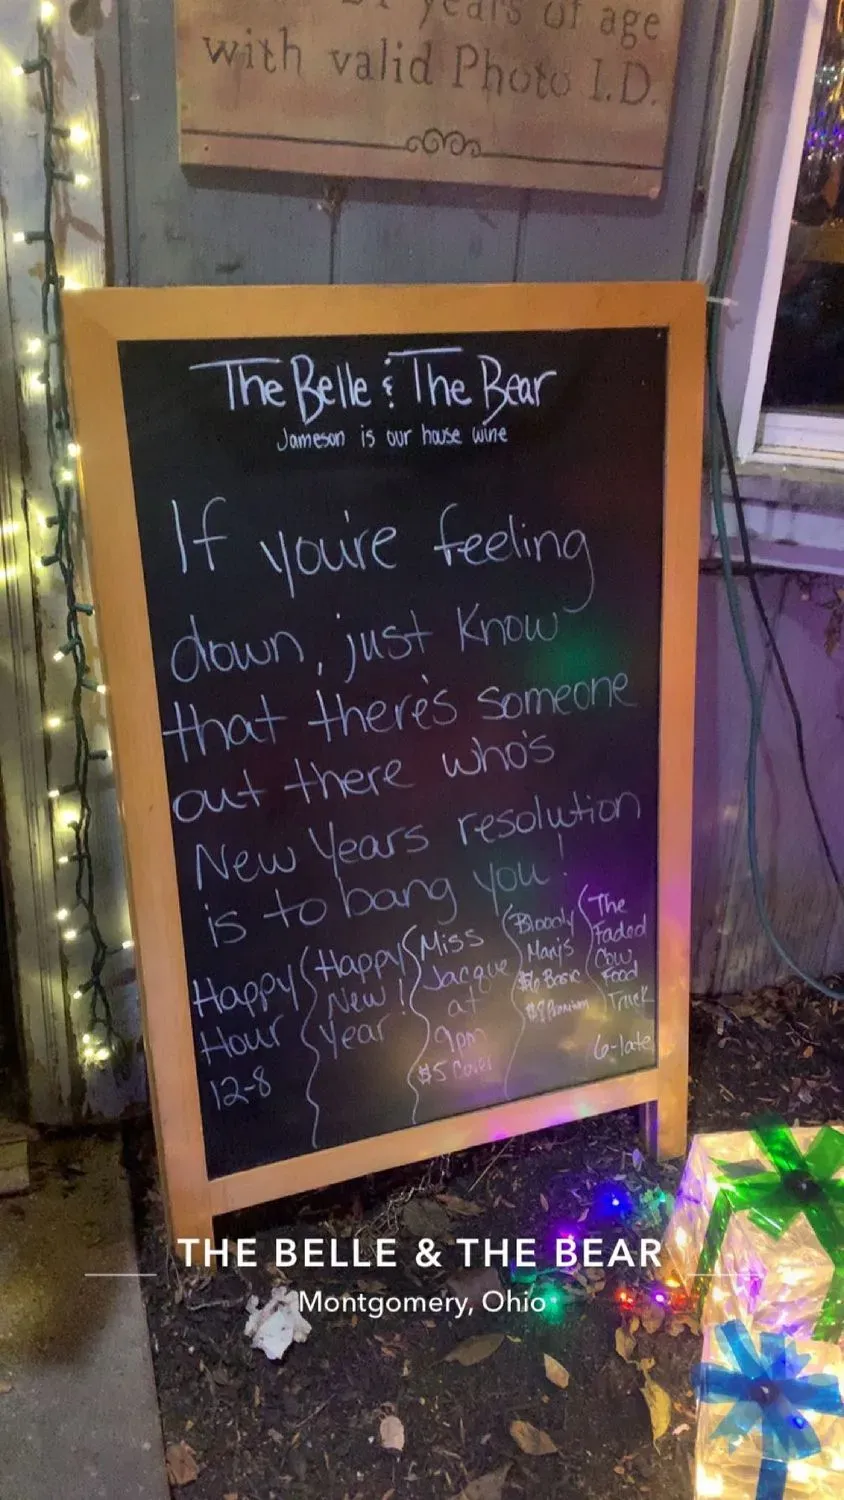 years of age
with valid Photo I.D.
The Belle & The Bear
Jameson is our house wine
If you're feeling
down, just know
that there's someone
out there who's
New Years resolution
is to bang you!
Happy
Hour
12-8
Happy
New !
Year
Miss
Jacque
at
9pm
$5 Cover
Bloody
Marys
$6 Basic
$8 Premium
The
Faded
Cow
Food
Truck
6-late
THE BELLE & THE BEAR
Montgomery, Ohio